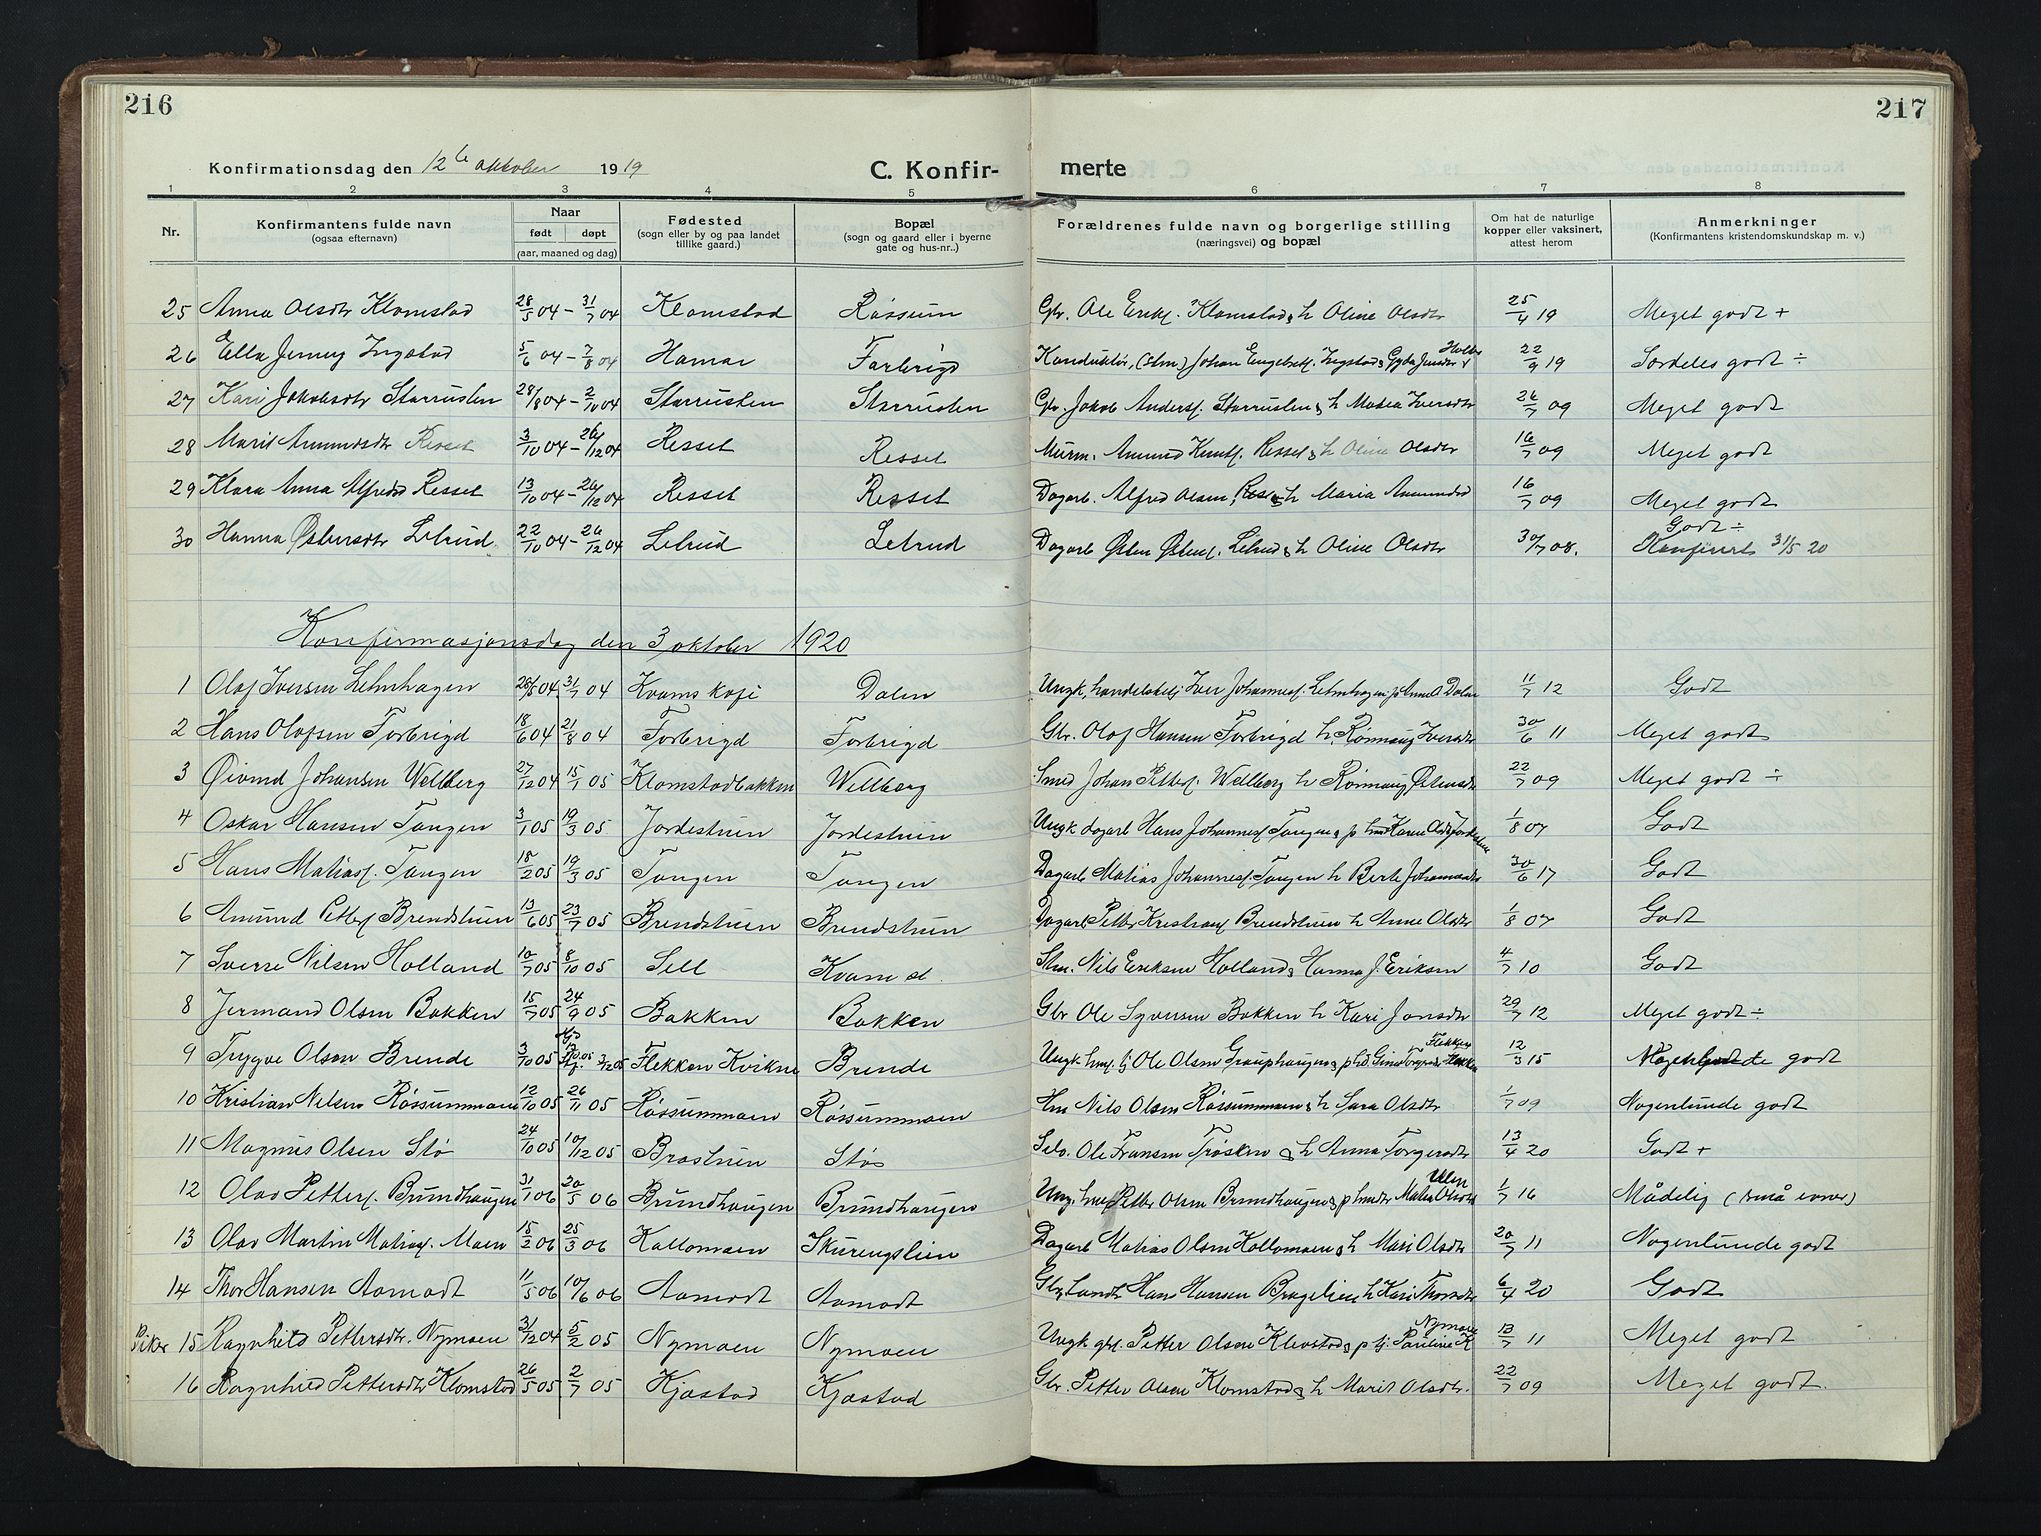 216
217
Konfirmationsdag den 12te oktober 1919
C. Konfir-
merte
1 2 3 4 5 6 7 8
Nr.
Konfirmantens fulde navn
(ogsaa efternavn)
Naar
født døpt
(aar, maaned og dag)
Fødested
(sogn eller by og paa landet
tillike gaard.)
Bopæl
(sogn og gaard eller i byerne
gate og hus-nr..)
Forældrenes fulde navn og borgerlige stilling
(næringsvei) og bopæl
Om hat de naturlige
kopper eller vaksinert,
attest herom
Anmerkninger
(Konfirmantens kristendomskundskap m. v.)
25 Anna Olsdtr Klomstad 28/5 04 – 31/7 04 Klomstad Røssum Gbr. Ole Eriks. Klomstad & h Oline Olsdtr 25/4 19 Meget godt +
26 Ella Jenny Ingstad 5/6 04 – 7/8 04 Hamar Forbrigd Konduktør, (Hm) Johan Engebrets. Ingstad & Gyda 22/9 19 Særdeles godt ÷
27 Kari Jakobsdtr Starrusten 28/8 04 – 2/10 04 Starrusten Starrusten Gbr. Jakob Anders. Starrusten & h Matea Iversdtr 26/7 09 Meget godt
28 Marit Amundsdtr Resset 3/10 04 – 26/12 04 Resset Resset Murm. Amund Knuts. Resset & h Oline Olsdtr 16/7 09 Meget godt
29 Klara Anna Alfredsd Resset 13/10 04 – 26/12 04 Resset Resset Dagarb. Alfred Olsen, Res & h Maria Amundsd 16/7 09 Meget godt
30 Hanna Østensdtr Letrud 22/10 04 – 26/12 04 Letrud Letrud Dagarb Østen Østens. Letrud & h Oline Olsdtr 30/7 08. Godt ÷
Konfirert 31/5 20
Konfirmasjonsdag den 3 oktober 1920
1 Olaf Iversen Lehnhagen 26/5 04 31/7 04 Kvams kafe Dalen Ungk, handelsbetj Iver Johanness. Lehnhagen p Anne O Dalen 11/7 12 Godt
2 Hans Olafsen Forbrigd 18/6 04 21/8 04 Forbrigd Forbrigd Gbr. Olaf Hansen Forbrigd h. Rønnaug Iversdtr 30/6 11 Meget godt
3 Øivind Johansen Wellberg 27/12 04 15/1 05 Klomstadbakken Wellberg Smed Johan Petters. Wellberg h Rønnaug Østensdtr 22/7 09 Meget godt ÷
4 Oskar Hansen Tangen 3/1 05 19/3 05 Jordestuen Jordestuen Ungk dagarb Hans Johanness Tangen & p Karen Olsdtr Jordestuen 1/8 07 Godt
5 Hans Matias. Tangen 18/2 05 19/3 05 Tangen Tangen Dagarb Matias Johanness Tangen h Berte Johannesdtr 30/6 17 Godt
6 Amund Petters Brendstuen 13/6 05 23/7 05 Brendstuen Brendstuen Dagarb Petter Kristians Brendstuen h Anne Olsdtr 1/8 07 Godt
7 Sverre Nilsen Holland 10/7 05 8/10 05 Sell Kvam st. Stm. Nils Eriksen Holland & Hanna J. Eriksen 4/7 10 Godt
8 Jermand Olsen Bakken 15/7 05 24/9 05 Bakken Bakken Gbr Ole Syversen Bakken h Kari Jonsdtr 29/7 12 Meget godt ÷
9 Trygve Olsen Brende 3/10 05 3/12 05 Flekken Kvikne Brende Ungk hms. tj Ole Olsen Grauphaugen & p Flekken 12/3 15 Nogenlunde godt
10 Kristian Nilsen Røssummoen 12/10 05 26/11 05 Røssummoen Røssummoen Hm Nils Olsen Røssummoen & h Sara Olsdtr 1/7 09 Nogenlunde godt
11 Magnus Olsen Stø 24/10 05 10/12 05 Brostuen Stø Selv. Ole Fransen Trøsken & h Anna Torgersdtr 13/4 20 Godt +
12 Olav Petters. Brundhaugen 31/1 06 20/5 06 Brundhaugen Brundhaugen Ung. hms Petter Olsen Brundhaugen & p hmdtr Matea Olsdtr Ulen 1/7 16 Mådelig (små evner)
13 Olav Martin Matias. Moen 15/2 06 25/3 06 Kollomoen Skurengslien Dagarb Matias Olsen Kollomoen & h Mari Olsdtr 20/7 11 Nogenlunde godt
14 Thor Hansen Aamodt 11/5 06 10/6 06 Aamodt Aamodt Gbr Hans Hansen Bragelien h Kari Thorsdtr 6/4 20 Godt
Piker 15 Ragnhild Pettersdtr. Nymoen 31/12 04 5/2 05 Nymoen Nymoen Ungk gbs. Petter Olsen Klevstad & p tj. Pauline K Nymoen 13/7 11 Meget godt
16 Ragnhild Pettersdtr Klomstad 26/5 05 2/7 05 Kjæstad Kjæstad Gbr. Petter Olsen Klomstad & h Marit Olsdtr. 22/7 09 Meget godt.